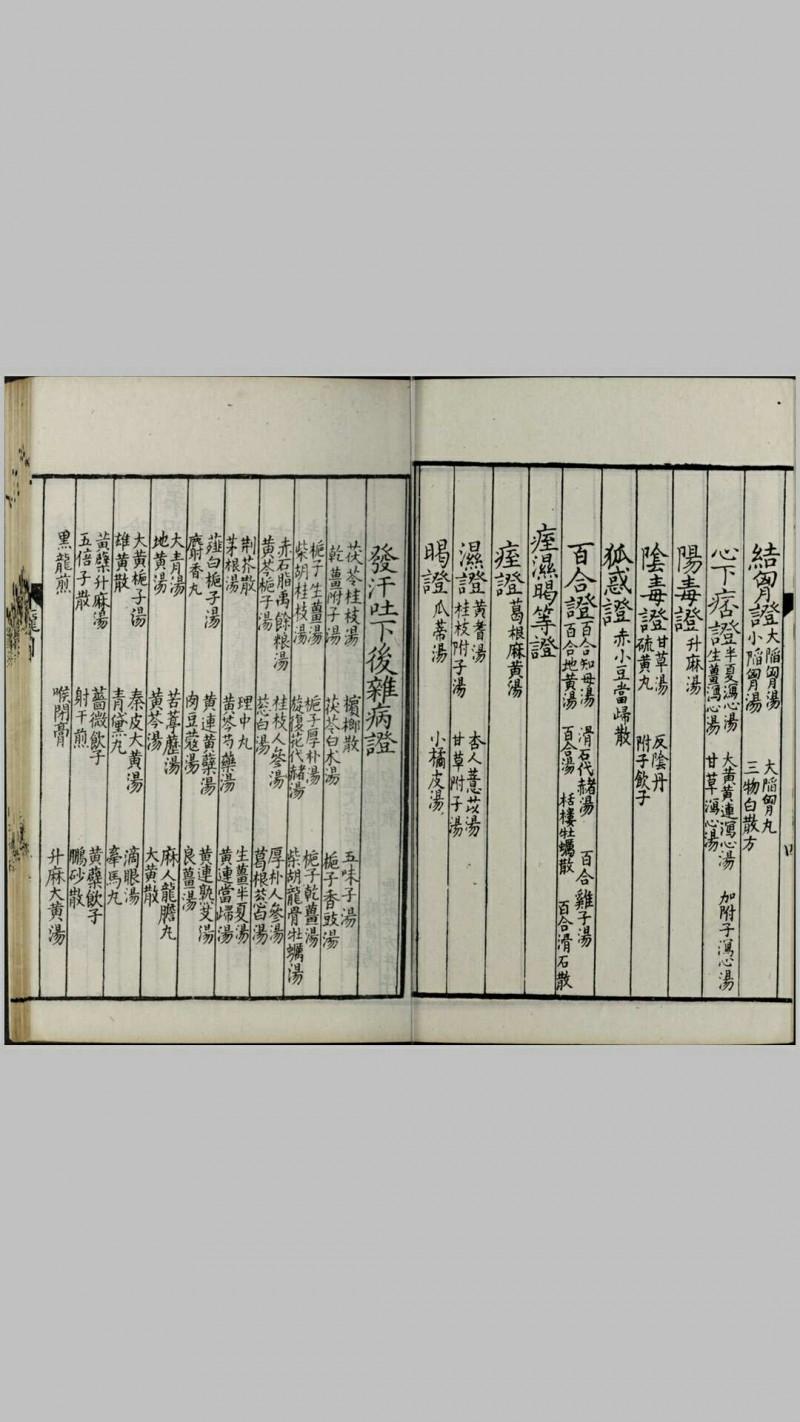 結胷證 大陷胷湯 大陷胷丸
小陷胷湯 三物白散方
心下痞證 半夏瀉心湯 大黃黃連瀉心湯 加附子瀉心湯
生薑瀉心湯 甘草瀉心湯
陽毒證 升麻湯
陰毒證 甘草湯 反陰丹
硫黃丸 附子飲子
狐惑證 赤小豆當歸散
百合證 百合知母湯 滑石代赭湯 百合雞子湯
百合地黃湯 百合湯 栝樓牡蠣散 百合滑石散
痓濕暍等證
痓證 葛根麻黃湯
濕證 黃耆湯 杏人薏苡湯
桂枝附子湯 甘草附子湯
暍證 瓜蒂湯 小橘皮湯
發汗吐下後雜病證
茯苓桂枝湯 檳榔散 五味子湯
乾薑附子湯 茯苓白朮湯 梔子香豉湯
梔子生薑湯 梔子厚朴湯 梔子乾薑湯
柴胡桂枝湯 旋復花代赭湯 柴胡龍骨牡蠣湯
赤石脂禹餘粮湯 桂枝人參湯 厚朴人參湯
黃芩梔子湯 葱白湯 葛根葱白湯
荆芥散 理中丸 生薑半夏湯
茅根湯 黃芩芍藥湯 黃連當歸湯
薤白梔子湯 黃連黃蘗湯 黃連熟艾湯
麝香丸 肉豆蔻湯 良薑湯
大青湯 苦葶藶湯 麻人龍膽丸
地黃湯 黃芩湯 大黃散
大黃梔子湯 秦皮大黃湯 滴眼湯
雄黃散 青黛丸 辜馬丸
黃蘗升麻湯 薔薇飲子 黃蘗飲子
五倍子散 射干煎 鵬砂散
黑龍煎 喉閉膏 升麻大黃湯